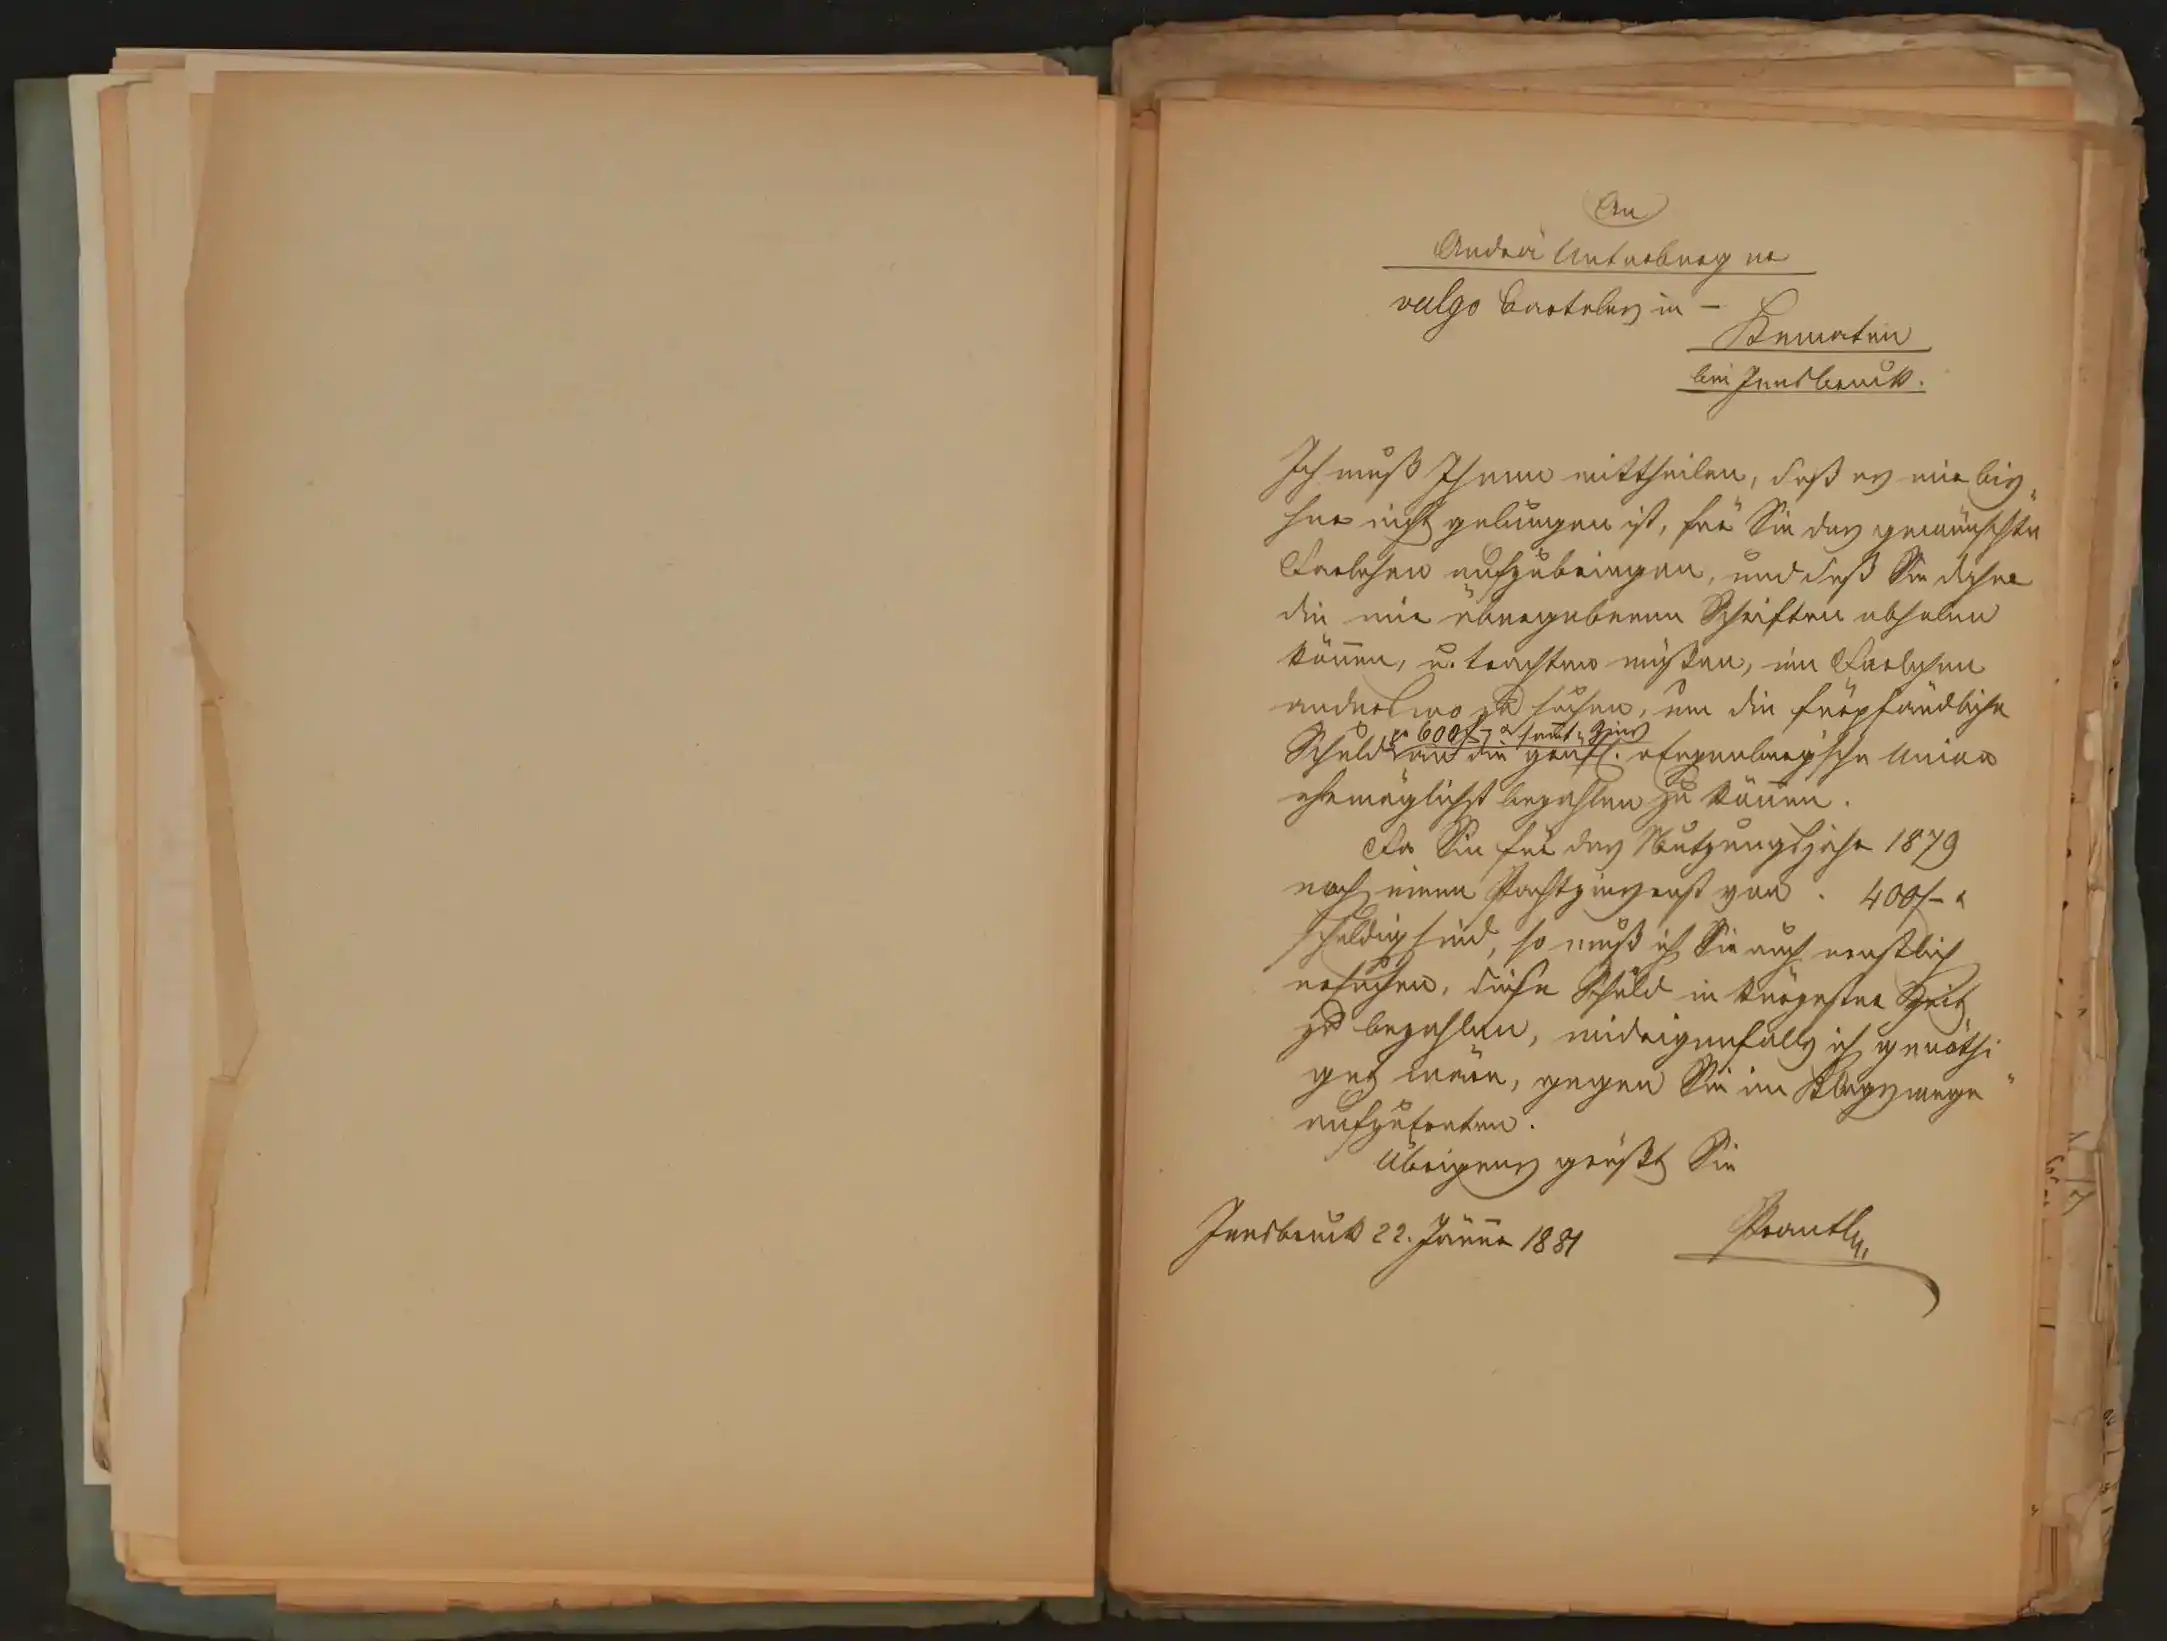 An
Andrä Unterberger
vulgo Bartelen in –
Kematen
bei Innsbruck.
Ich muß Ihnen mittheilen, daß es mir bis„
her nicht gelungen ist, für Sie das gewünschte
Darlehen aufzubringen, und daß Sie daher
die mir übergebenen Schriften abholen
können, u. trachten müßen, ein Darlehen
anderswo zu suchen, um die fürpfändliche
pr 600 f – x samt Zins
Schuld an die gräfl. Union
ehemöglichst bezahlen zu können.
Da Sie für das Nutzungsjahr 1879
noch einen Pachtzinsrest von . 400 f – x
schuldig sind, so muß ich Sie auch ernstlich
ersuchen, diese Schuld in kürzester Zeit
zu bezahlen, widrigenfalls ich genöthi„
get wäre, gegen Sie im Klagswege
aufzutreten.
Übrigens grüßt Sie
Innsbruck 22. Jänner 1881
Prantl